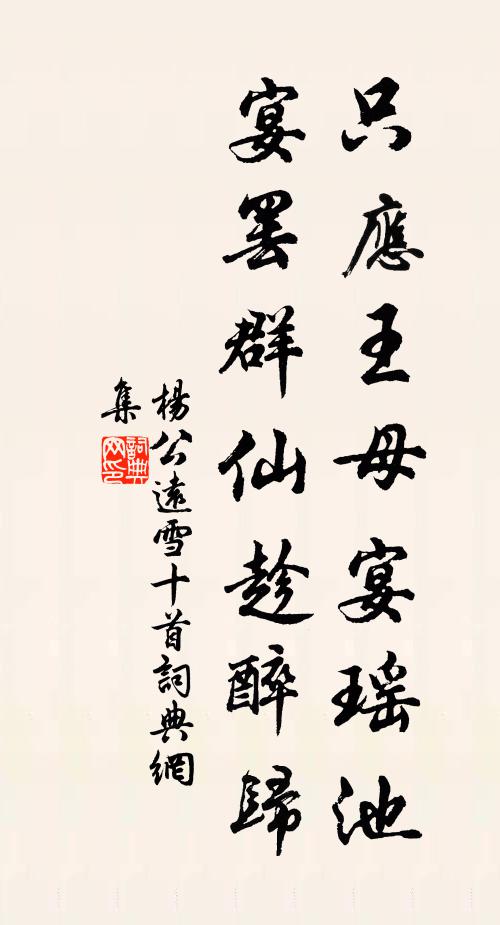 只應王母宴瑤池
宴罷群仙趁醉歸
楊公遠雪十首詞典網
集
詞典
网印